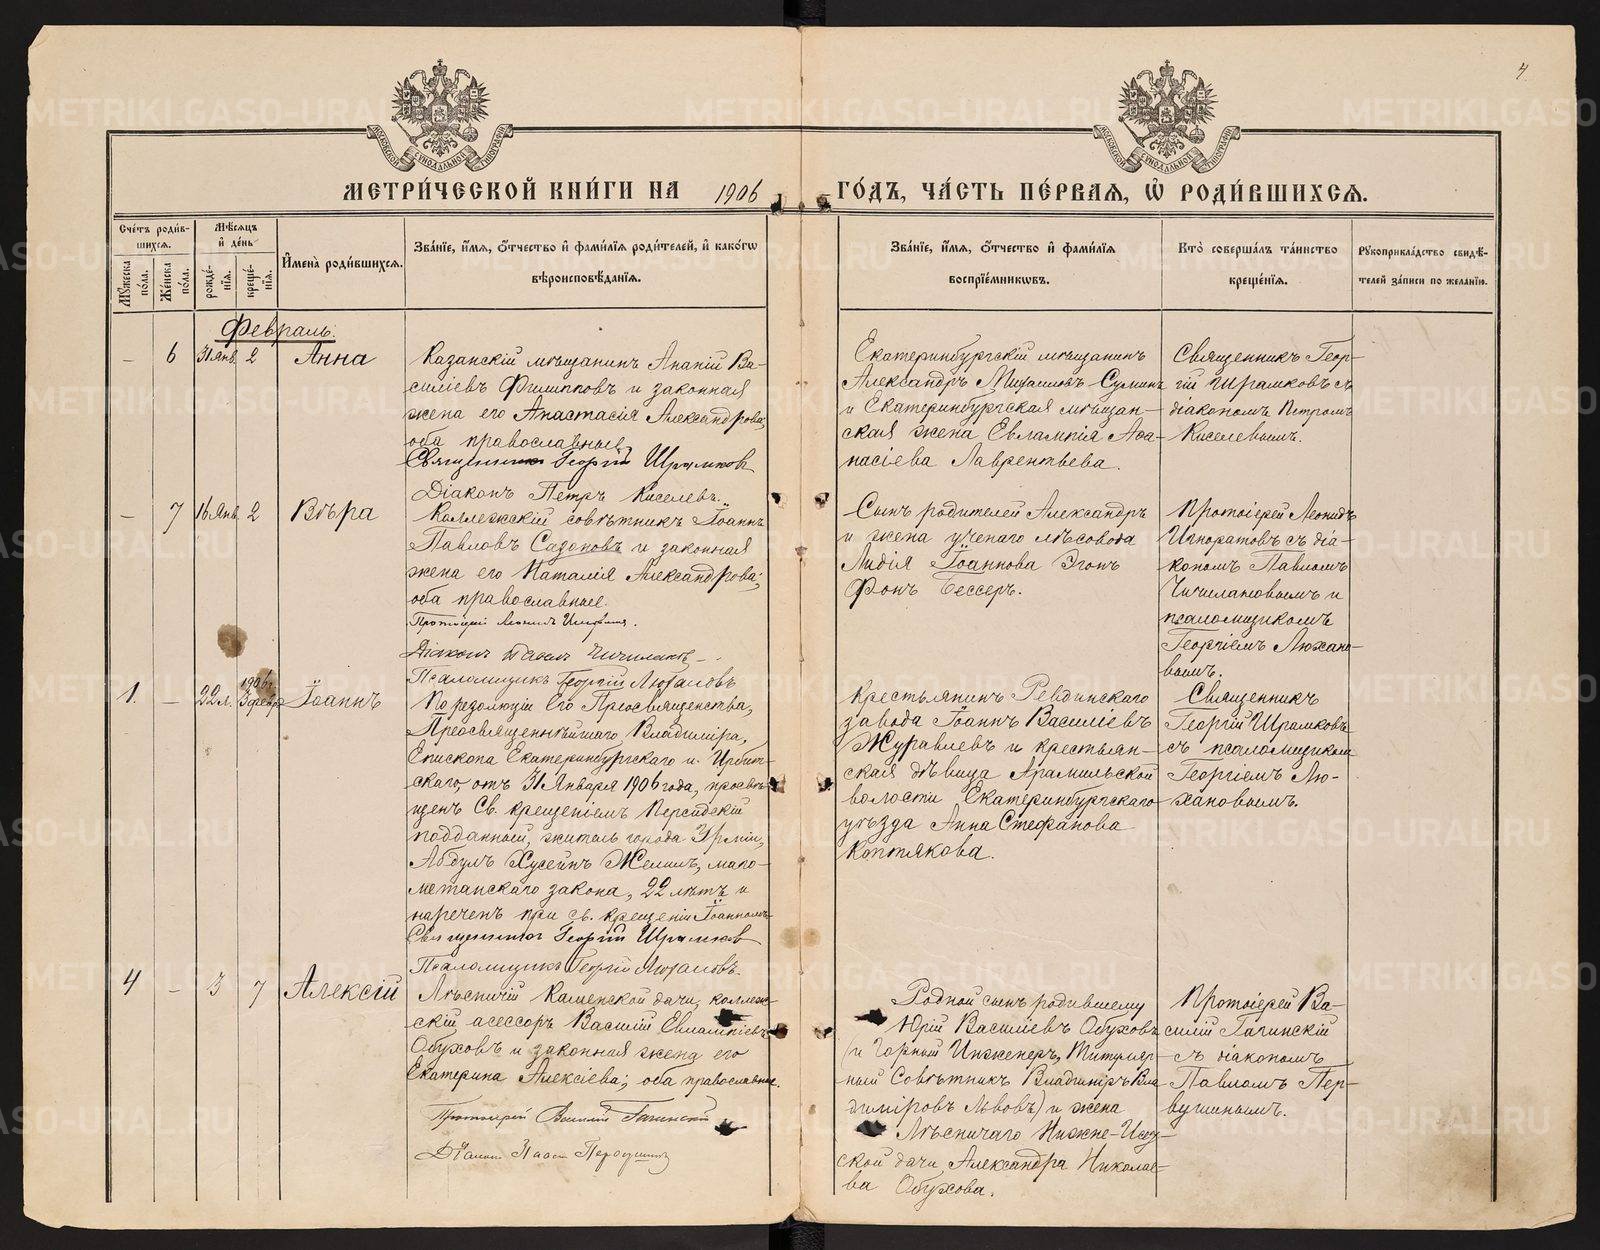 4
МЕТРИ́ЧЕСКОЙ КНИ́ГИ НА 1906 ГО́ДЪ, ЧА́СТЬ ПЕ́РВАЯ, Ѡ҆ РОДИ́ВШИХСѦ.
Сче́тъ роди́в-
шихсѧ.
Мѣ́сѧцъ
и҆ де́нь
Мꙋ́жеска по́ла.
Же́нска по́ла.
рожде́-
нїѧ.
креще́-
нїѧ.
И҆мена̀ роди́вшихсѧ.
Зва́нїе, и҆́мѧ, ѻ҆́тчество и҆ фами́лїѧ роди́телей, и҆ како́гѡ
вѣроисповѣ́данїѧ.
Зва́нїе, и҆́мѧ, ѻ҆́тчество и҆ фами́лїѧ
воспрїе́мникѡвъ.
Кто̀ соверша́лъ та́инство
креще́нїѧ.
Рꙋкоприкла́дство свидѣ́-
телей за́писи по жела́нїю.
Февраль.
– 6 31 Янв. 2 Анна
Казанскій мѣщанинъ Ананій Ва-
силіевъ Филипповъ и законная
жена его Анастасія Александрова;
оба православные
Священникъ Георгій Шрамковъ
Діаконъ Петръ Киселевъ.
Екатеринбургскій мѣщанинъ
Александръ Михаиловъ
и Екатеринбургская мѣщан-
ская жена Евлампія Аѳа-
насіева Лаврентьева.
Священникъ Геор-
гій Шрамковъ съ
діакономъ Петромъ
Киселевымъ.
– 7 16 Янв. 2 Вѣра
Коллежскій совѣтникъ Іоаннъ
Павловъ Садоковъ и законная
жена его Наталія Александрова;
оба православные.
Протоіерей Леонидъ
Діаконъ Павелъ
Псаломщикъ Георгій Люхановъ
Сынъ родителей Александръ
и жена ученаго лѣсовода
Лидія Іоаннова Эгонъ
Фонъ Бессеръ.
Протоіерей Леонидъ
Игноратовъ съ діа-
кономъ Павломъ
Чичилановымъ и
псаломщикомъ
Георгіемъ Люхано-
вымъ.
1. – 22 л. 1906 г. 3 февр. Іоаннъ
По резолюціи Его Преосвященства,
Преосвященнѣйшаго Владиміра,
Епископа Екатеринбургскаго и Ирбит-
скаго, отъ 31 Января 1906 года, просвѣ-
щенъ Св. крещеніемъ Персидскій
подданный, житель города
Абдулъ Хусейнъ Желилъ, маго-
метанскаго закона, 22 лѣтъ и
нареченъ при св. крещеніи Іоанномъ
Священникъ Георгій Шрамковъ
Псаломщикъ Георгій Люхановъ.
Крестьянинъ Ревдинскаго
завода Іоаннъ Василіевъ
Журавлевъ и крестьян-
ская дѣвица Арамильской
волости Екатеринбургскаго
уѣзда Анна Стефанова
Коптякова.
Священникъ
Георгій Шрамковъ
съ псаломщикомъ
Георгіемъ Лю-
хановымъ.
4 – 3 7 Алексій
Лѣсничій Каменской дачи, коллеж-
скій асессоръ Василій Евлампіевъ
Обуховъ и законная жена его
Екатерина Алексіева; оба православные.
Протоіерей Василій Гагинскій
Діаконъ Павелъ Первушинъ
Родной сынъ родившему
Юрій Василіевъ Обуховъ
(и Горный Инженеръ, Титуляр-
ный Совѣтникъ Владиміръ Вла-
диміровъ Львовъ) и жена
Лѣсничаго Нижне-Исет-
ской дачи, Александра Николае-
ва Обухова.
Протоіерей Ва-
силій Гагинскій
съ діакономъ
Павломъ Пер-
вушинымъ.
METRIKI.GASO-URAL.RU